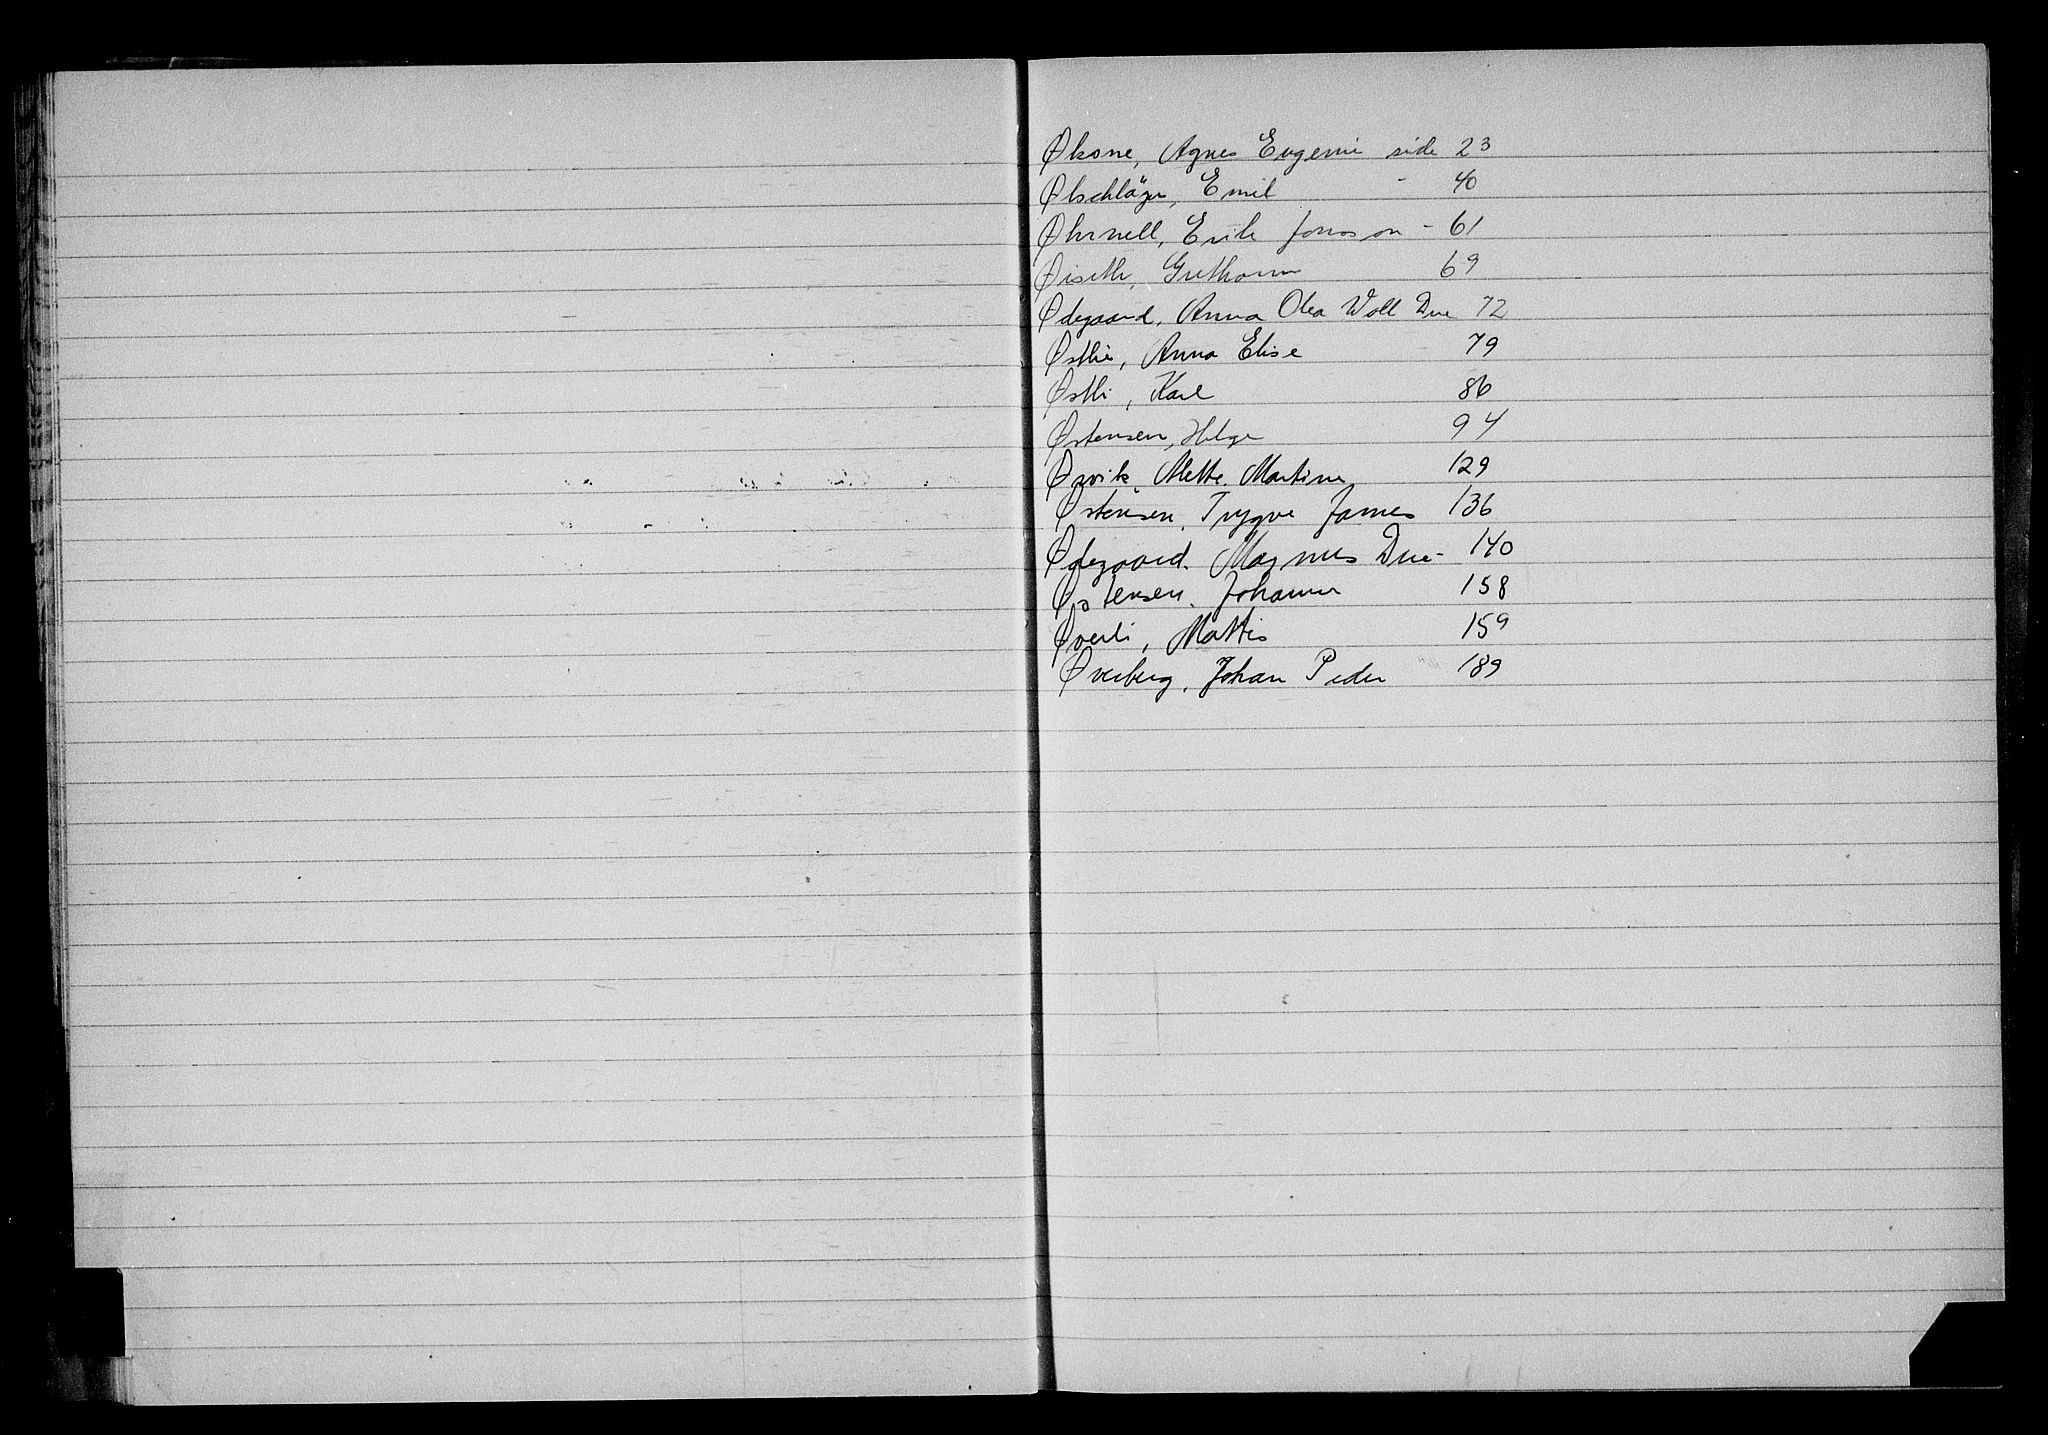 Økone, Agnes Eugenie side 23
Ølschläger, Emil - 40
Øhrnell, Erik Jonsson - 61
Øiseth, 69
Ødegaard, Anna Olea Woll Due 72
Østlie, Anna Elise 79
Østli, Karl 86
Østensen, Helge 94
Ørvik, Mette Martine 129
Østensen, Trygve James 136
Ødegaard. Magnus Due- 140
Østensen, Johanne 158
Øverli, Mattis 159
Øverberg, Johan Peder 189